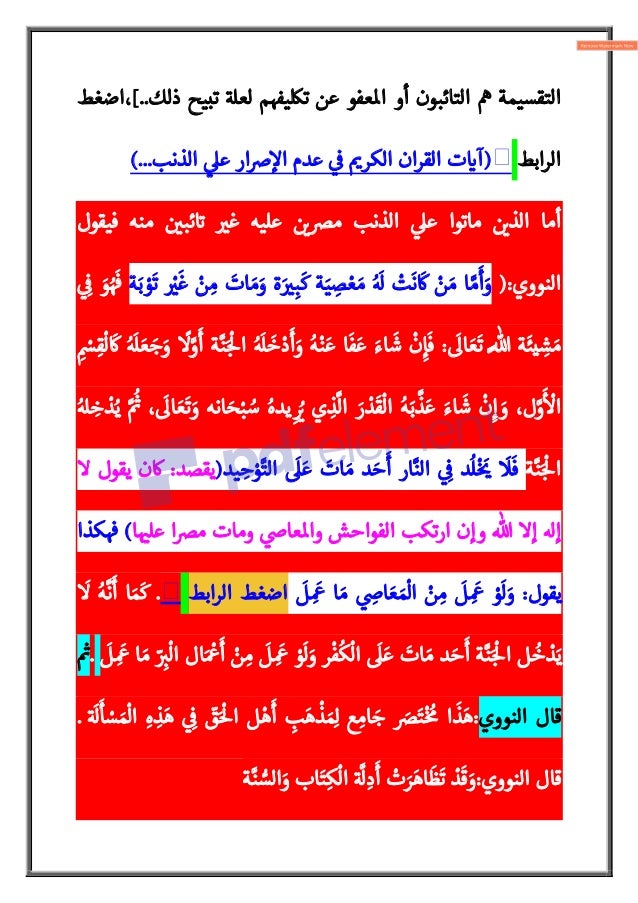 Remove Watermark Now
التقسيمة هم التائبون أو المعفو عن تكليفهم لعلة تبيح ذلك..]،اضغط
الرابط (آيات القران الكريم في عدم الإصرار علي الذنب...)
أما الذين ماتوا علي الذنب مصرين عليه غير تائبين منه فيقول
النووي:( وَأَمَّا مَنْ كَانَتْ لَهُ مَعْصِيَة كَبِيرَة وَمَاتَ مِنْ غَيْر تَوْبَة فَهُوَ فِي
مَشِيئَة الله تَعَالَى: فَإِنْ شَاءَ عَفَا عَنْهُ وَأَدْخَلَهُ الْجَنَّة أَوَّلًا وَجَعَلَهُ كَالْقِسْمِ
الْأَوَّل، وَإِنْ شَاءَ عَذَّبَهُ الْقَدْرَ الَّذِي يُرِيدهُ سُبْحَانه وَتَعَالَى، ثُمَّ يُدْخِلهُ
الْجَنَّة فَلَا يَخْلُد فِي النَّار أَحَد مَاتَ عَلَى التَّوْحِيد(يقصد: كان يقول لا
إله إلا الله وإن ارتكب الفواحش والمعاصي ومات مصرا عليها) فهكذا
يقول: وَلَوْ عَمِلَ مِنْ الْمَعَاصِي مَا عَمِلَ اضغط الرابط . كَمَا أَنَّهُ لَا
يَدْخُل الْجَنَّة أَحَد مَاتَ عَلَى الْكُفْر وَلَوْ عَمِلَ مِنْ أَعْمَال الْبِرّ مَا عَمِلَ .ثم
قال النووي:هَذَا مُخْتَصَر جَامِع لِمَذْهَبِ أَهْل الْحَقّ فِي هَذِهِ الْمَسْأَلَة .
قال النووي:وَقَدْ تَظَاهَرَتْ أَدِلَّة الْكِتَاب وَالسُّنَّة
pdfelement